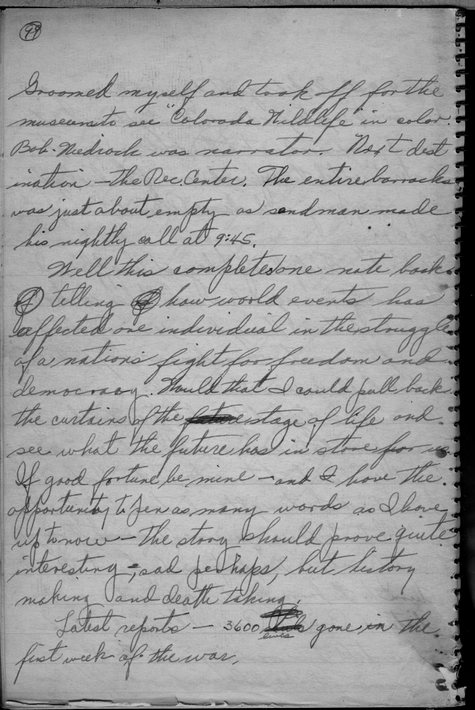 99
Groomed myself and took off for the
museum to see "Colorado Wildlife" in color.
Bob was narrator. Next dest
ination - the Rec. Center. The entire barracks
was just about empty as sandman made
his nightly call at 9:45.
Well this completes one note book
of telling of how world events has
affected one individual in the struggle
of a nation's fight for freedom and
democracy. Would that I could pull back
the curtains of the stage of life and
see what the future has in store for us.
If good fortune be mine - and I have the
opportunity to pen as many words as I have
up to now - the story should prove quite
interesting; sad perhaps, but history
making and death taking.
Latest reports - 3600 lives gone in the
first week of the war.